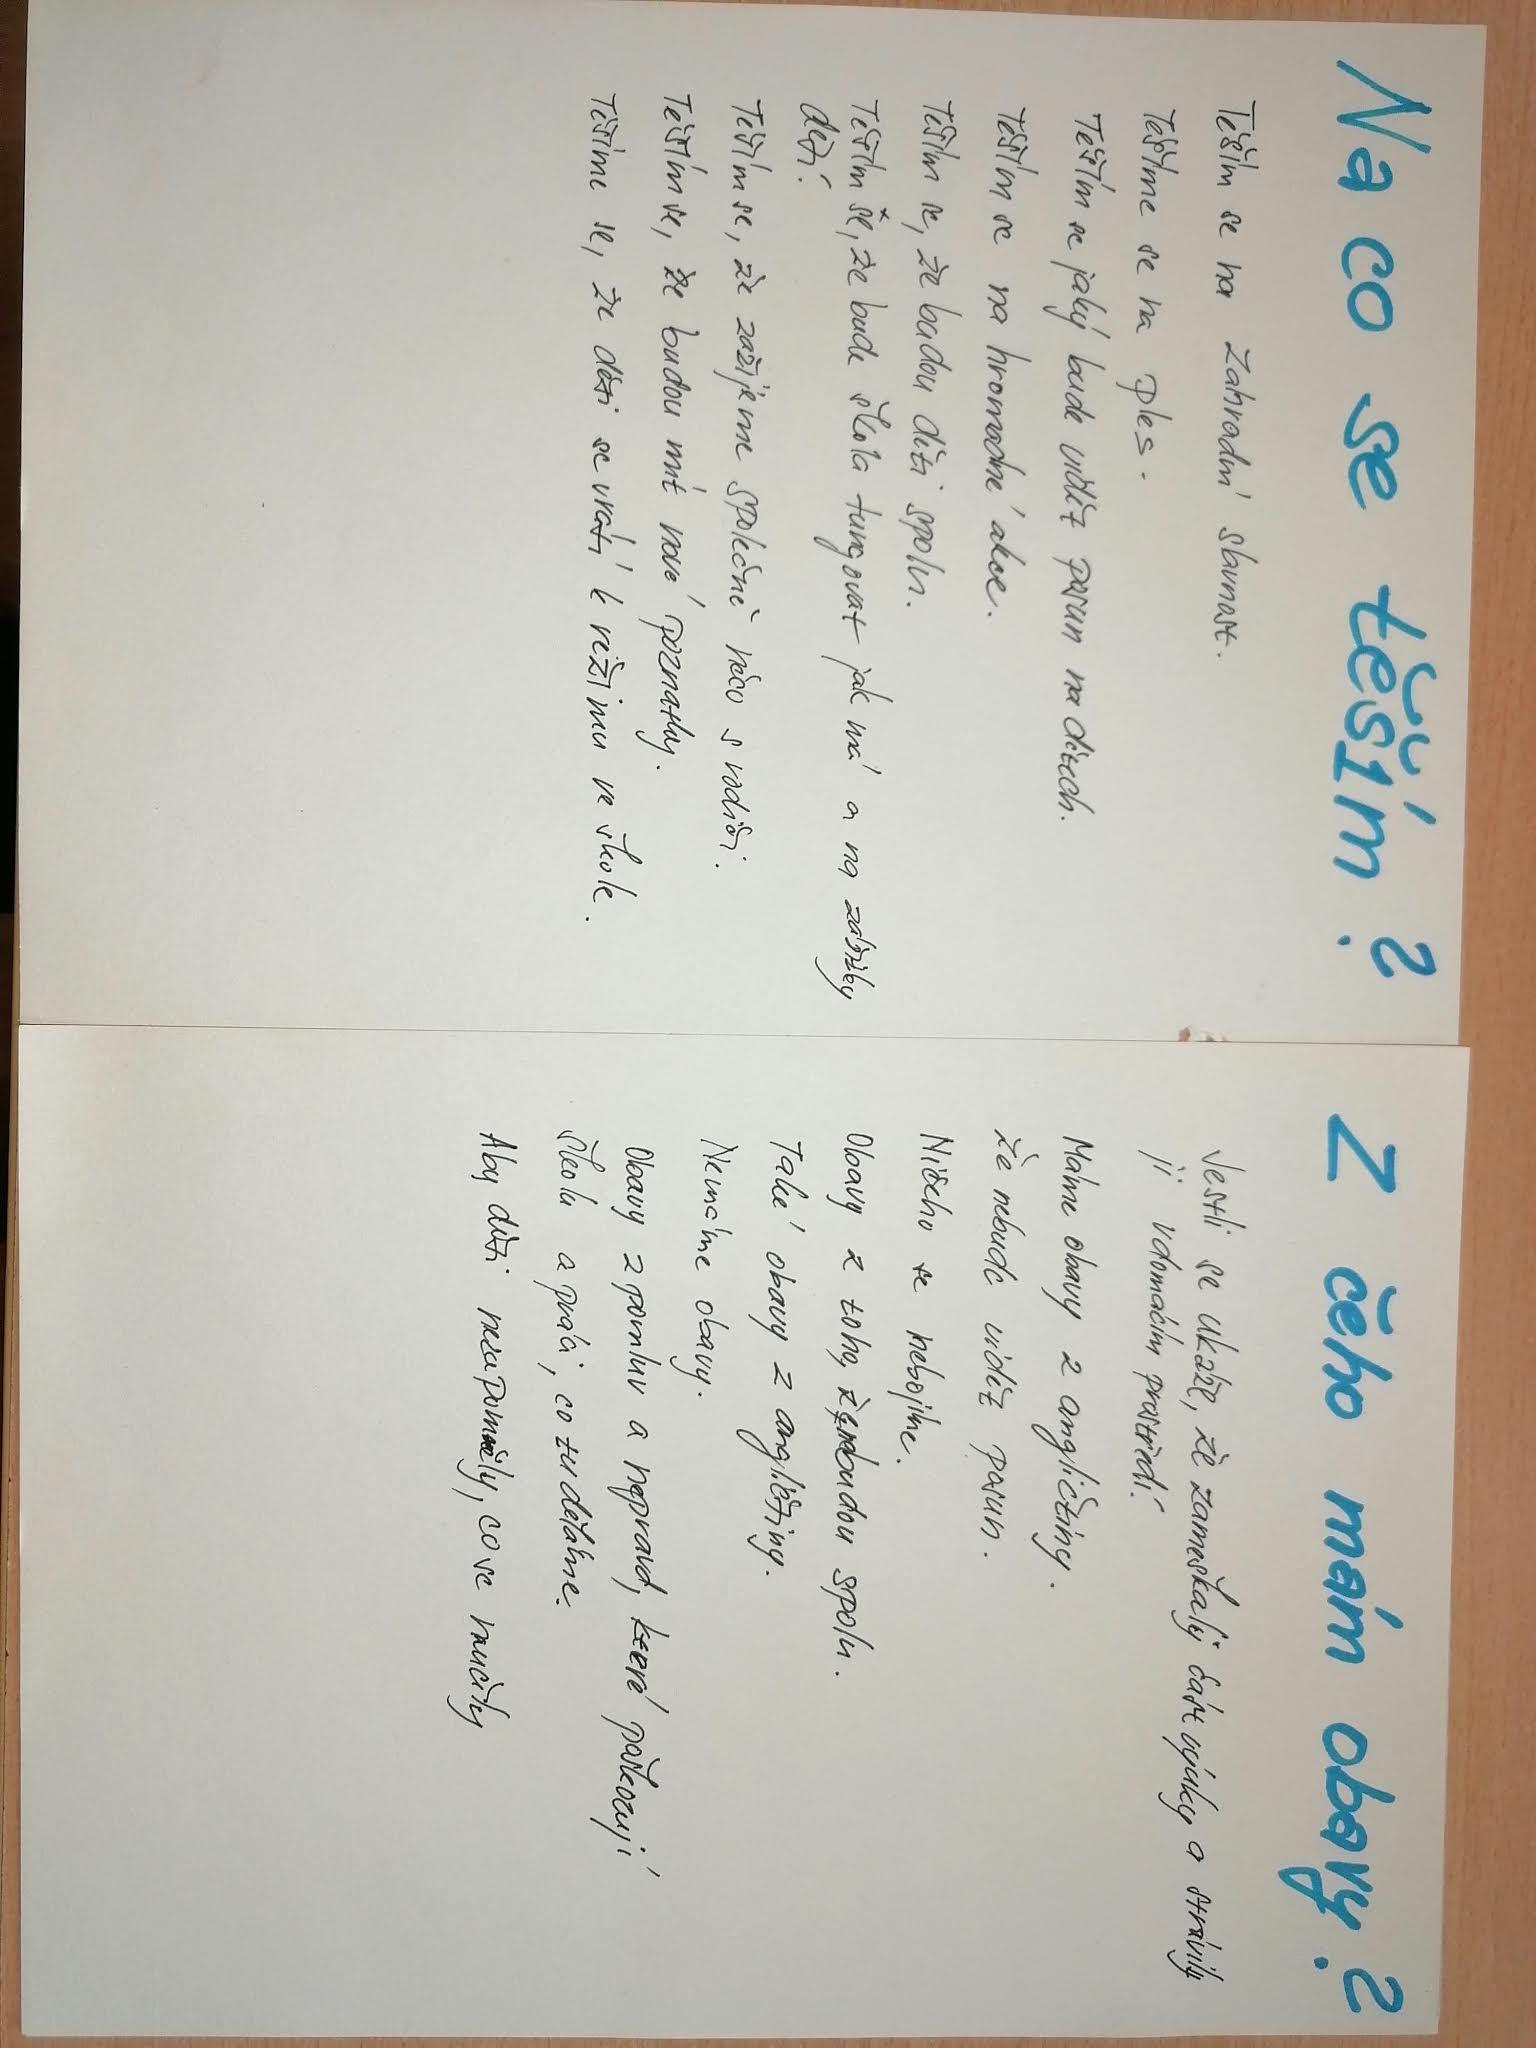 Na co se těším?
Těším se na zahradní slavnost.
Těšíme se na ples.
Těším se jaký bude vidět posun na dětech.
Těším se na hromadné akce.
Těším se, že budou děti spolu.
Těším se, že bude škola fungovat jak má a na zážitky
dětí.
Těším se, že zažijeme společně něco s rodiči.
Těším se, že budou mít nové poznatky.
Těšíme se, že děti se vrátí k režimu ve škole.
Z čeho mám obavy?
Jestli se ukáže, že zameškaly část výuky a strávily
ji v domácím prostředí.
Máme obavy z angličtiny.
že nebude vidět posun.
Ničeho se nebojíme.
Obavy z toho, že nebudou spolu.
Také obavy z angličtiny.
Nemáme obavy.
Obavy z pomluv a nepravd, které poškozují
školu a práci, co tu děláme.
Aby děti nezapomněly, co se naučily